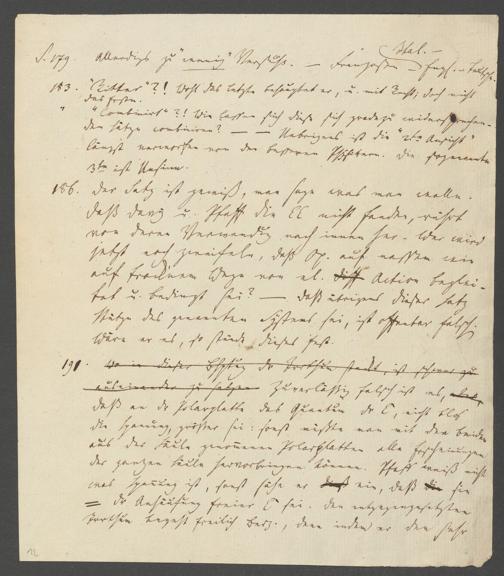 Ital. —
S. 179. Allerdings zu "wenig" Verstuß. — Franzosen — Engl. — Deutsche.
183. "Ritter"?! Wohl das letzte behauptet er, u. mit Recht, doch nicht
das erste.
" "Combinirt"?! Wie lassen sich diese sich gradezu widersprechen-
den Sätze combiniren? — — Uebrigens ist die "2te Ansicht"
längst verworfen von den besseren Physikern. Die sogenannte
3te ist Unsinn.
186. Der Satz ist gewiß, man sage was man wolle.
Daß Davy u. Pfaff die EE nicht fanden, rührt
von deren Verwendung nach innen her. Wer wird
jetzt noch zweifeln, daß Op. auf nassem wie
auf trocknem Wege von el. Action beglei-
tet u. bedingt sei? — daß übrigens dieser Satz
Stütze des genannten Systems sei, ist offenbar falsch.
Wäre er es, so stünde dieses fest.
191. zu
auseinander zu setzen. Zuverlässig falsch ist es,
daß an der Polarplatte das Quantum der E, nicht blos
die Spannung, größer sei: sonst müßten man mit den beiden
aus der Säule genommenen Polarplatten alle Erscheinungen
der ganzen Säule hervorbringen können. Pfaff weiß nicht
was Spannung ist, sonst sähe er ein, daß sie
= der Anhäufung freier E sei. Den entgegengesetzten
Irrthum begeht freilich Berz., denn indem er den sehr